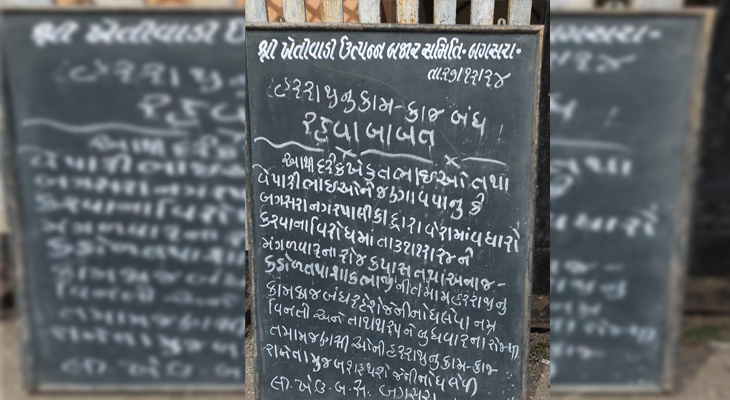 શ્રી ખેતીવાડી ઉત્પન્ન બજાર સમિતિ- બગસરા-
હરરાજીનુ કામ-કાજ બંધ
રહેવા બાબત
આથી દરેક ખેડુતભાઇઓ તથા
વેપારીભાઇઓને જણાવવાનુ કે
બગસરા નગરપાલીકા દ્વારા વેરામાં વધારો
કરવાના વિરોધમાં તા.૩૧/૧૨/૨૪ ને
મંગળવારના રોજ કપાસ તથા અનાજ-
કઠોળ તથા શાકભાજીની તમામ હરરાજીનુ
કામકાજ બંધ રહેશે જેની નોંધ લેવા નમ્ર
વિનંતી અને તા.૧/૧/૨૫ ને બુધવારના રોજથી
તમામ જણસીઓની હરરાજીનુ કામ-કાજ
રાબેતા મુજબ શરૂ થશે જેની નોંધ લેવી
લી. ખે.ઉ.બ.સ. બગસરા